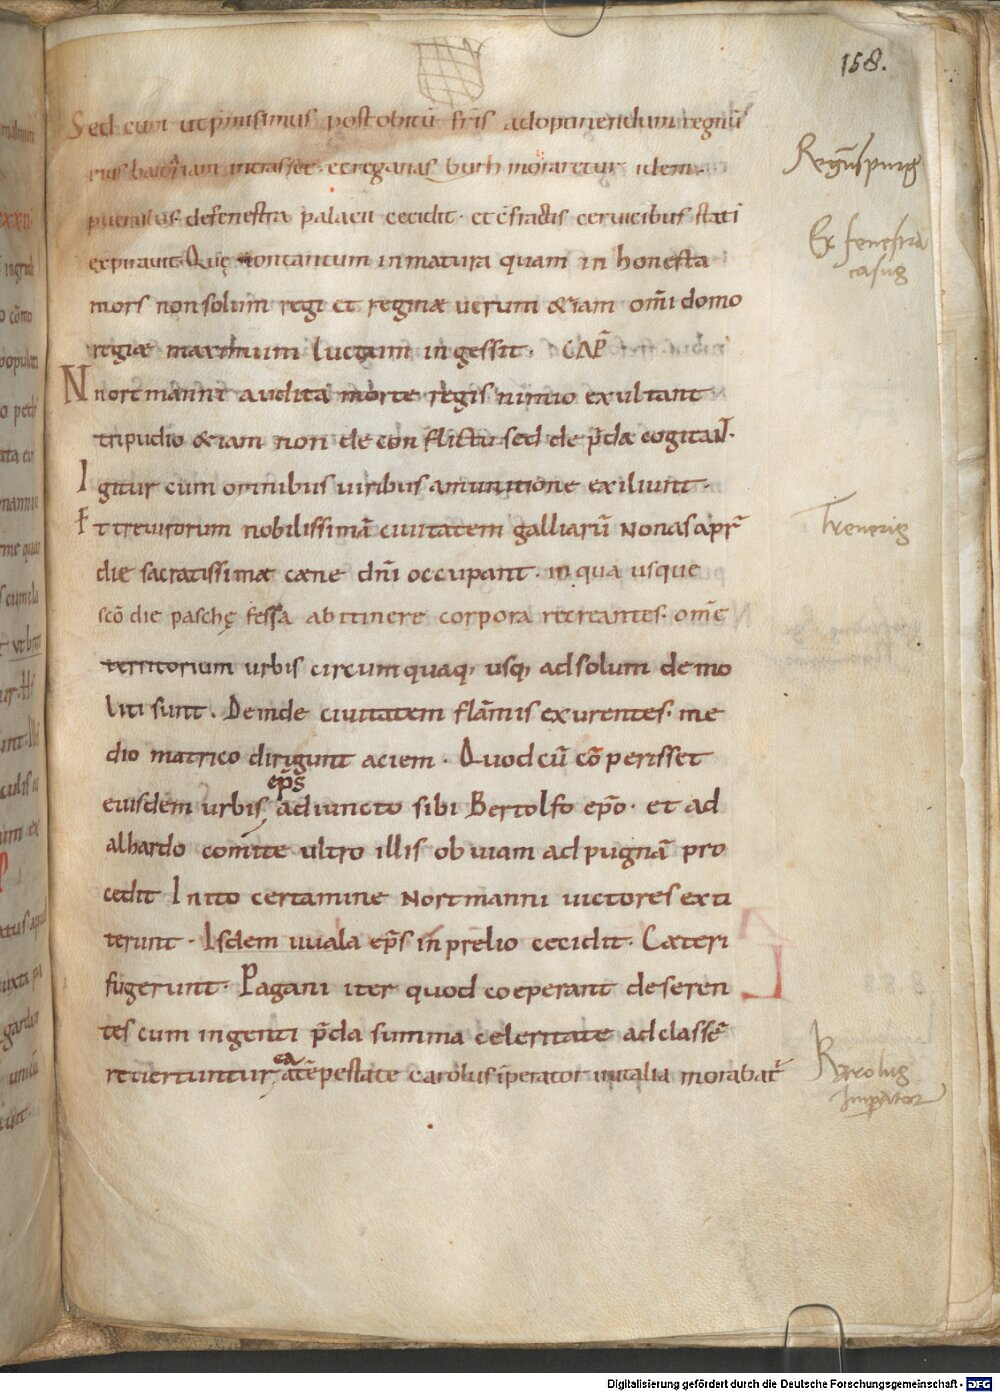 158.
Sed cum ut p̄missimus post obitū fr̄is ad optinendum regnū
eius baioariam intrasset · et reganas burh moraretur idem
puerulus de fenestra palacii cecidit · et cͦfractis cervicibus stati
expiravit Quę non tantum inmatura quam in honesta
mors non solum regi et reginæ verum &iam om̄i domo
regiæ maximum luctum in gessit · CAP̄
Nnortmanni audita morte regis nimio exultant
tripudio &iam non de con flictu sed de p̄da cogitaɴ̄t·
Igitur cum omnibus viribus amunitione exiliunt ·
Et trevirorum nobilissimā civitatem galliarū Nonas apr̄
die sacratissimæ cæne dn̄i occupant · in qua usque
scō die paschę fessa ab itinere corpora recreantes · om̄e
territorium urbis circumquaq, usq, ad solum demo
liti sunt . Deinde civitatem flāmis exurentes · me
dio matrico dirigunt aciem · Quod cū cō perisset
eiusdem urbis, ep̄s adiuncto sibi Bertolfo ep̄o · et ad
alhardo comite ultro illis obviam ad pugnā pro
cedit Inito certamine Nortmanni victores exti
terunt · Isdem uuala ep̄s in prelio cecidit · Cæteri
fugerunt · Pagani iter quod coeperant deseren
tes cum ingenti p̄da summa celeritate ad classē
revertuntur, ea tēpestate carolus īperator in italia morabat᷑
Regn̄spurg
Ex fenestra
casus
Treveris
Karolus
Imperator
Digitalisierung gefördert durch die Deutsche Forschungsgemeinschaft - DFG